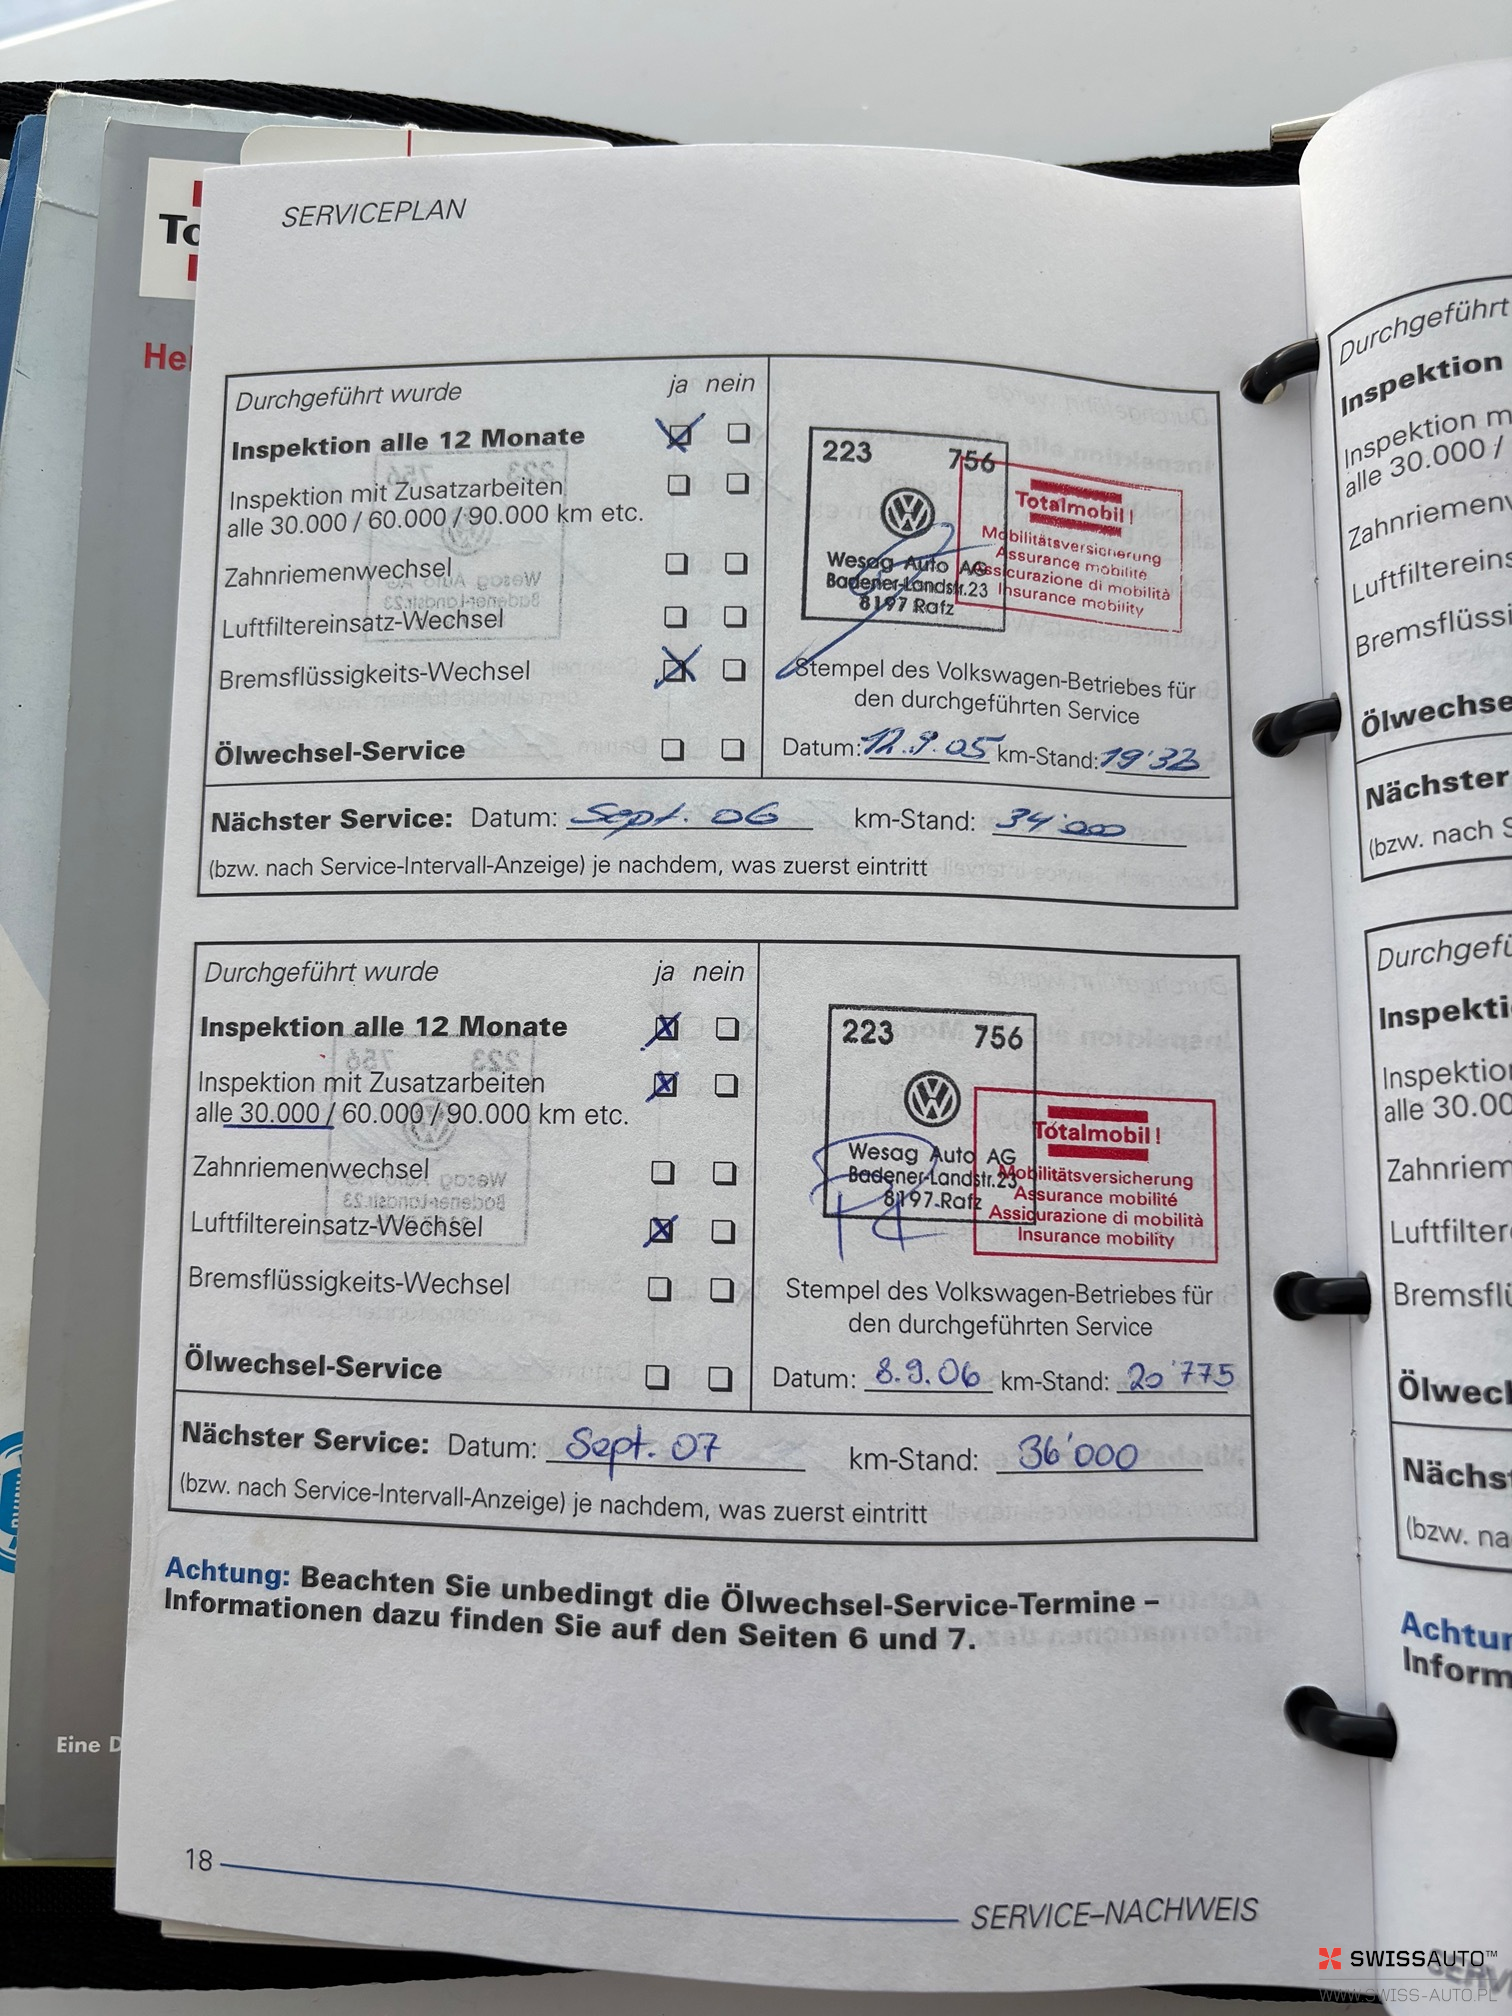 SERVICEPLAN
To
Hel
Durchgeführt wurde ja nein
Inspektion alle 12 Monate
Inspektion mit Zusatzarbeiten
alle 30.000 / 60.000 / 90.000 km etc.
Zahnriemenwechsel
Luftfiltereinsatz-Wechsel
Bremsflüssigkeits-Wechsel
Ölwechsel-Service
223 756
Wesag Auto AG
Badener-Landstr.23
8197 Rafz
Totalmobil!
Mobilitätsversicherung
Assurance mobilité
Assicurazione di mobilità
Insurance mobility
Stempel des Volkswagen-Betriebes für
den durchgeführten Service
Datum: 12.9.05 km-Stand:
Nächster Service: Datum: Sept. 06 km-Stand: 34'000
(bzw. nach Service-Intervall-Anzeige) je nachdem, was zuerst eintritt
Durchgeführt wurde ja nein
Inspektion alle 12 Monate
Inspektion mit Zusatzarbeiten
alle 30.000 / 60.000 / 90.000 km etc.
Zahnriemenwechsel
Luftfiltereinsatz-Wechsel
Bremsflüssigkeits-Wechsel
Ölwechsel-Service
223 756
Wesag Auto AG
Badener-Landstr.23
8197 Rafz
Totalmobil!
Mobilitätsversicherung
Assurance mobilité
Assicurazione di mobilità
Insurance mobility
Stempel des Volkswagen-Betriebes für
den durchgeführten Service
Datum: 8.9.06 km-Stand: 20'775
Nächster Service: Datum: Sept. 07 km-Stand: 36'000
(bzw. nach Service-Intervall-Anzeige) je nachdem, was zuerst eintritt
Achtung: Beachten Sie unbedingt die Ölwechsel-Service-Termine –
Informationen dazu finden Sie auf den Seiten 6 und 7.
Eine D
18
SERVICE–NACHWEIS
Durchgeführt
Inspektion
Inspektion m
alle 30.000 /
Zahnriemenw
Luftfiltereins
Bremsflüssi
Ölwechse
Nächster
(bzw. nach S
Durchgefü
Inspekti
Inspektio
alle 30.00
Zahnriem
Luftfilter
Bremsflü
Ölwech
Nächst
(bzw. na
Achtun
Inform
SERV
SWISSAUTO™
WWW.SWISS-AUTO.PL